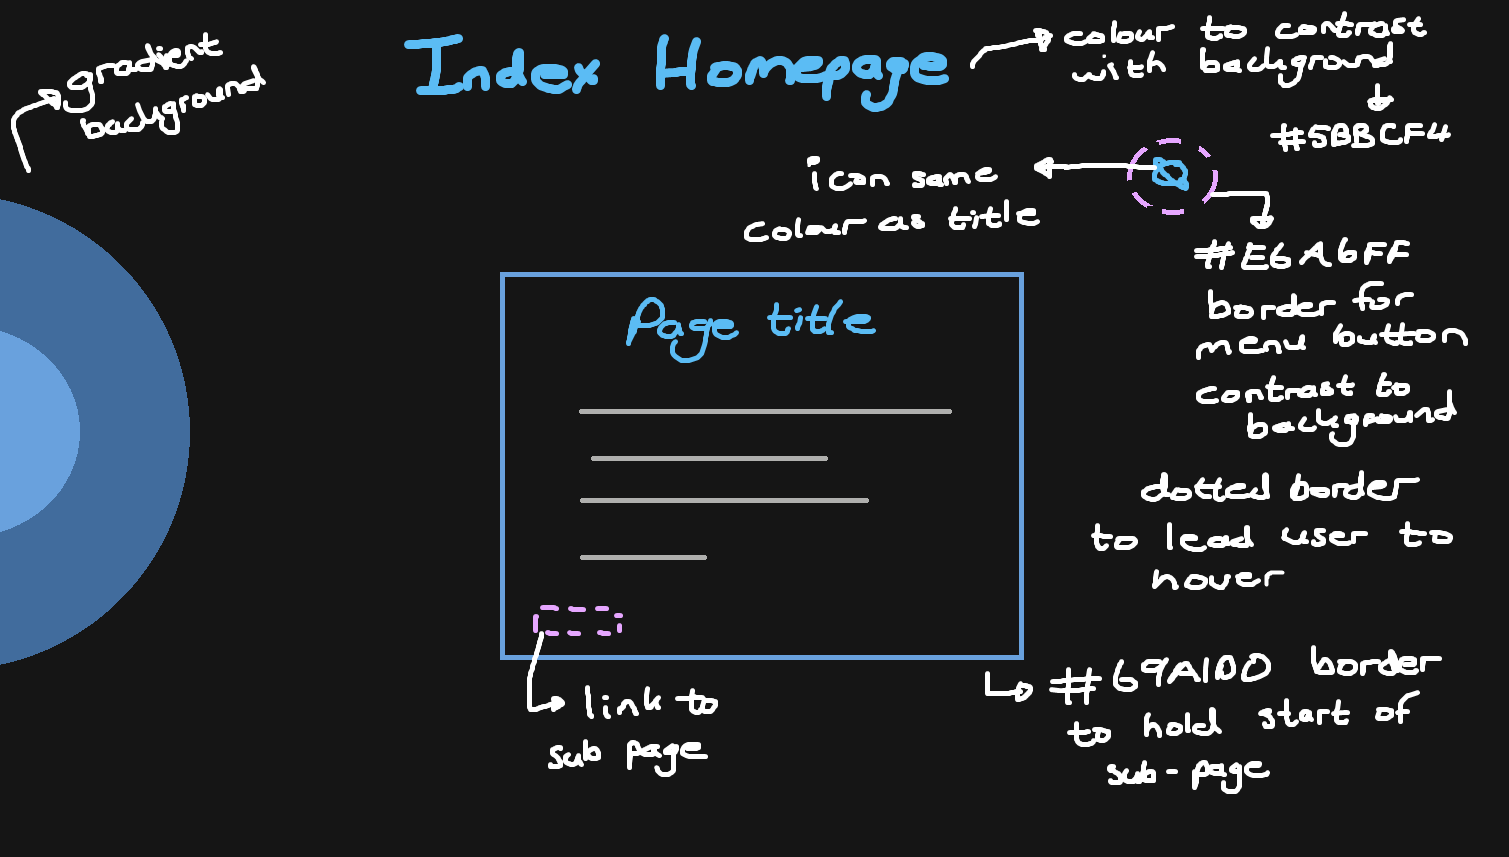 gradient
background
Index Homepage
colour to contrast
with background
#5BBCF4
icon same
colour as title
#E6A6FF
border for
menu button
contrast to
background
Page title
dotted border
to lead user to
hover
link to
sub page
#69A1DD border
to hold start of
sub-page